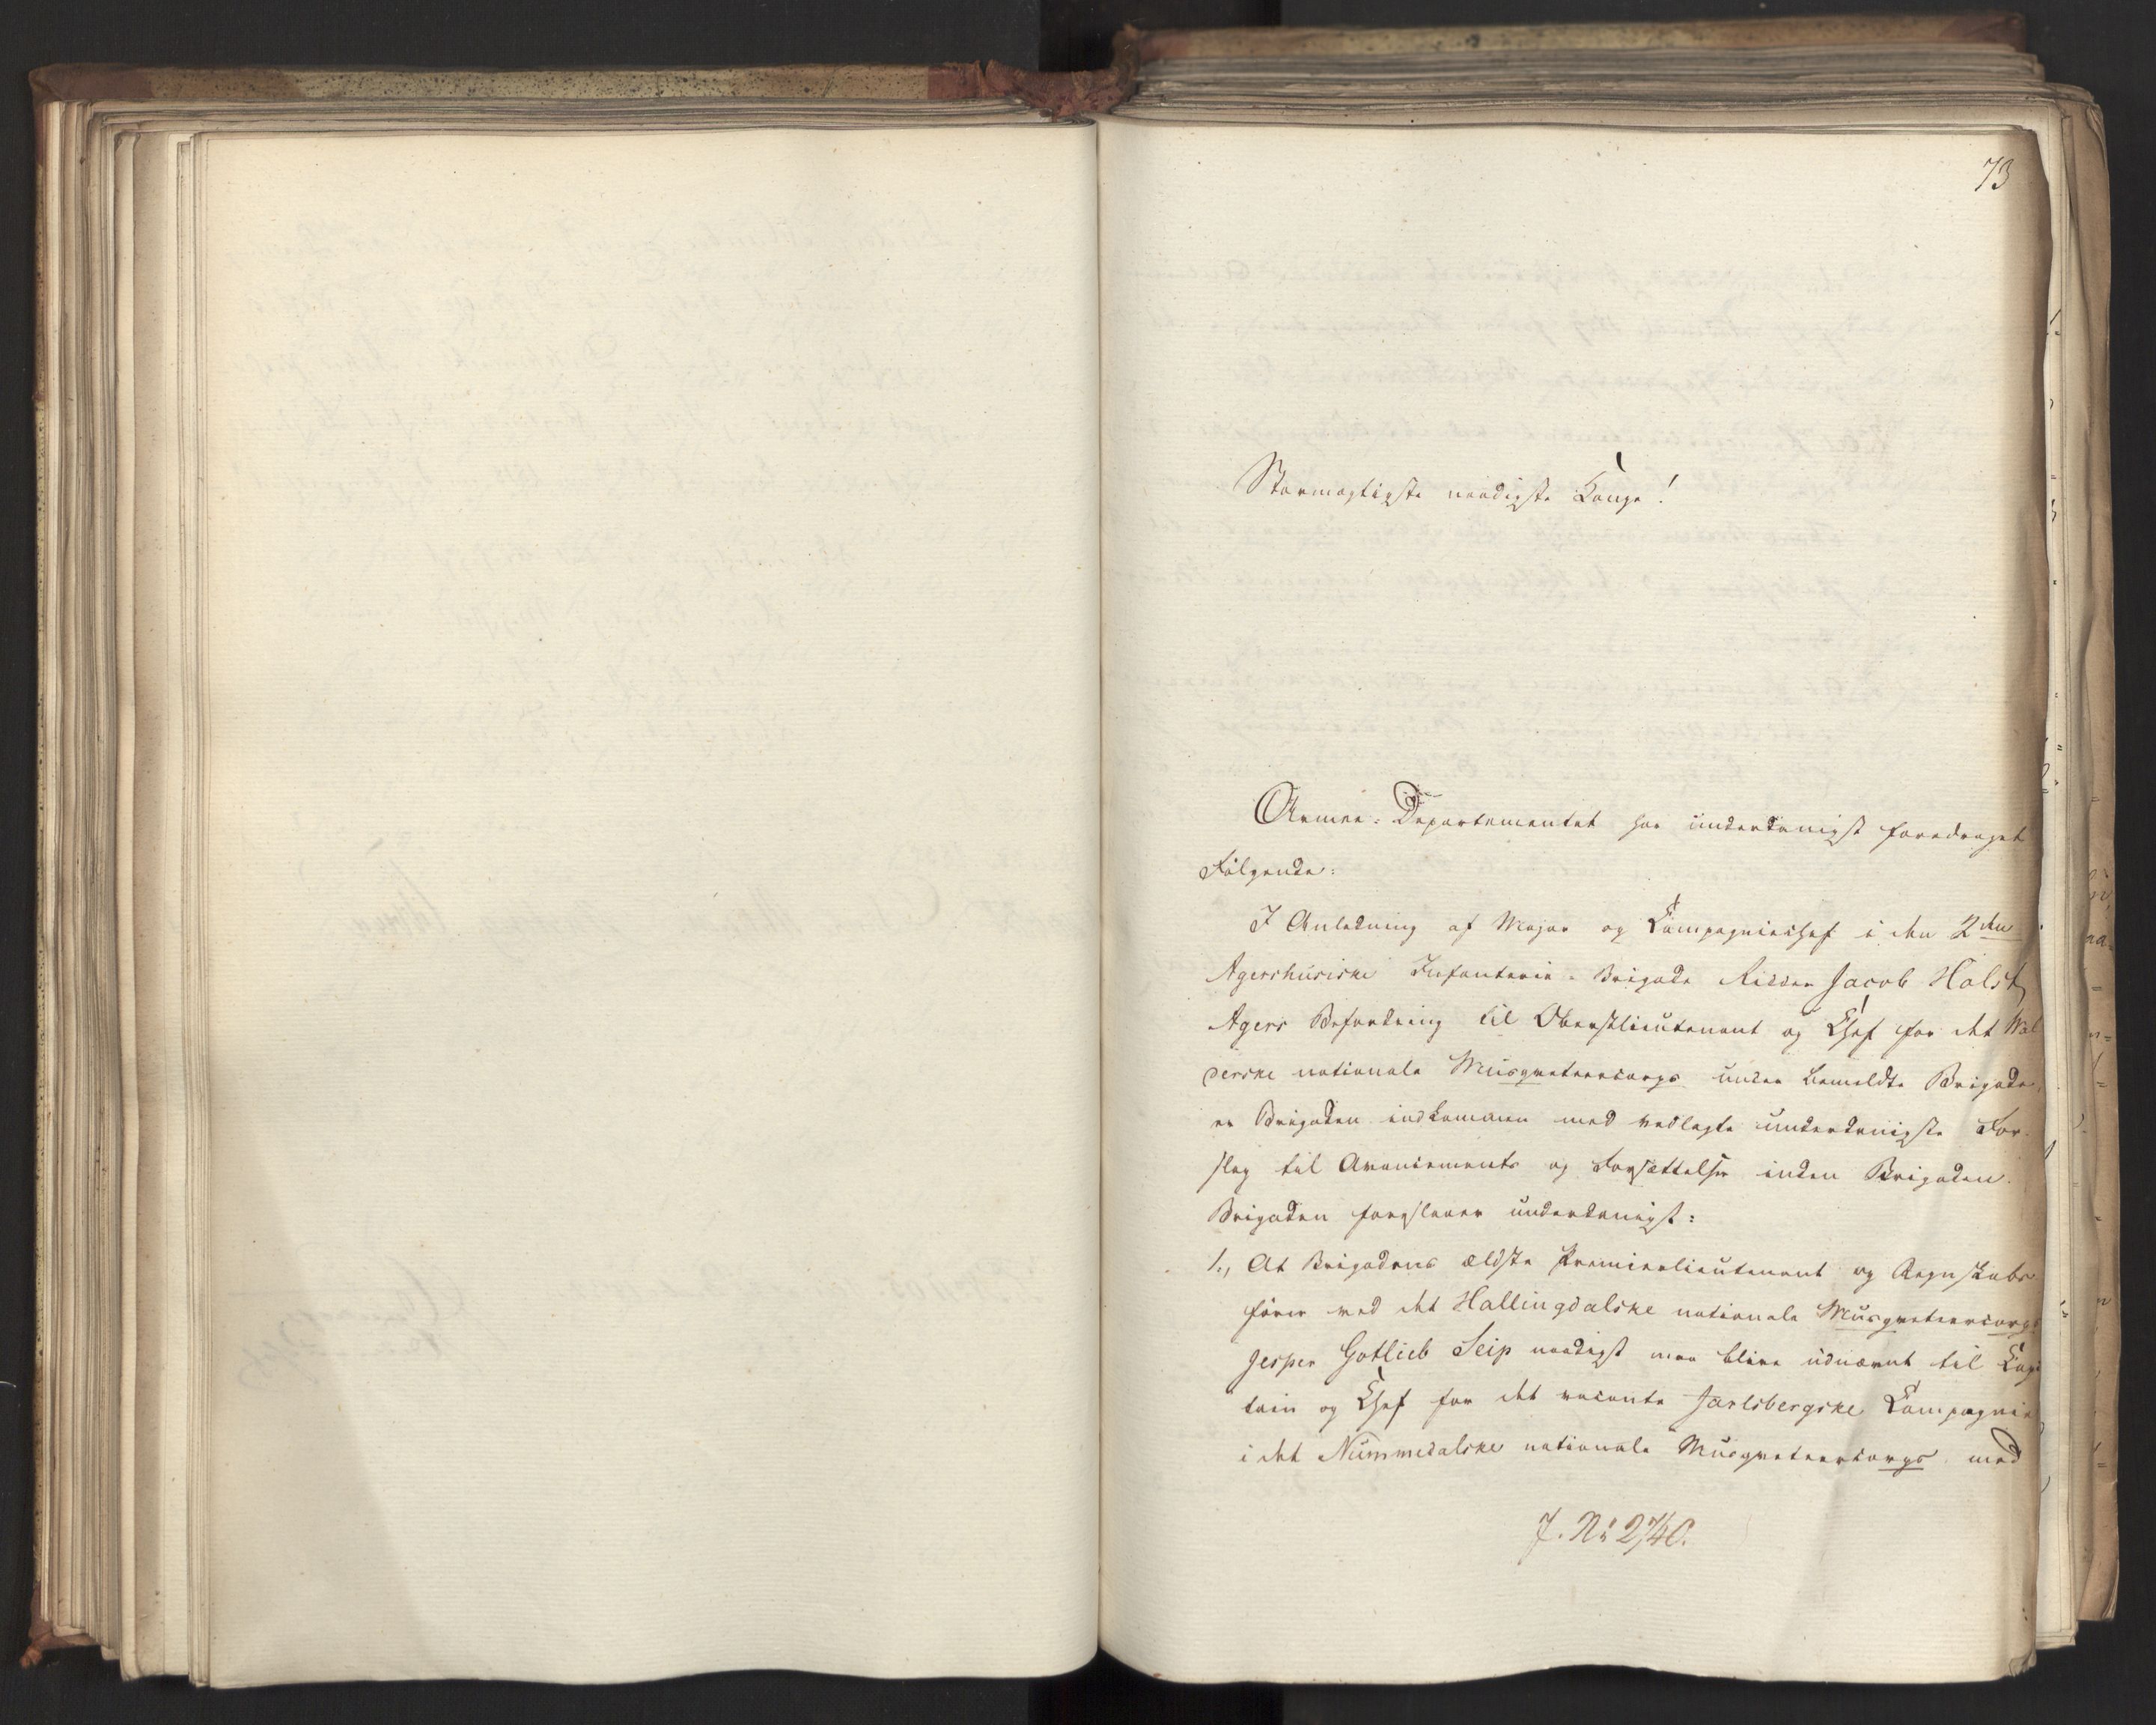 73
Stormægtigste naadigste Konge!
Armee-Departementet har underdanigst foredraget
Følgende:
I Anledning af Major og Compagniechef i den 2den
Agershusiske Infanterie-Brigade Ridder Jacob Holst
Agers Befordring til Oberstlieutenant og Chef for det Wal
derske nationale Musqueteercorps under bemeldte Brigade,
er Brigaden indkommen med vedlagte underdanigste For-
slag til Avancements og Forsættelser inden Brigaden.
Brigaden foreslaaer underdanigst:
1., At Brigadens ældste Premierlieutenant og Regnskabs
fører ved det Hallingdalske nationale Musqueteercorps
Jesper Gotlieb Seip naadigst maa blive udnævnt til Capi
tain og Chef for det vacante Jarlsbergske Compagnie
i det Nummedalske nationale Musqueteercorps med
J. No 2740.